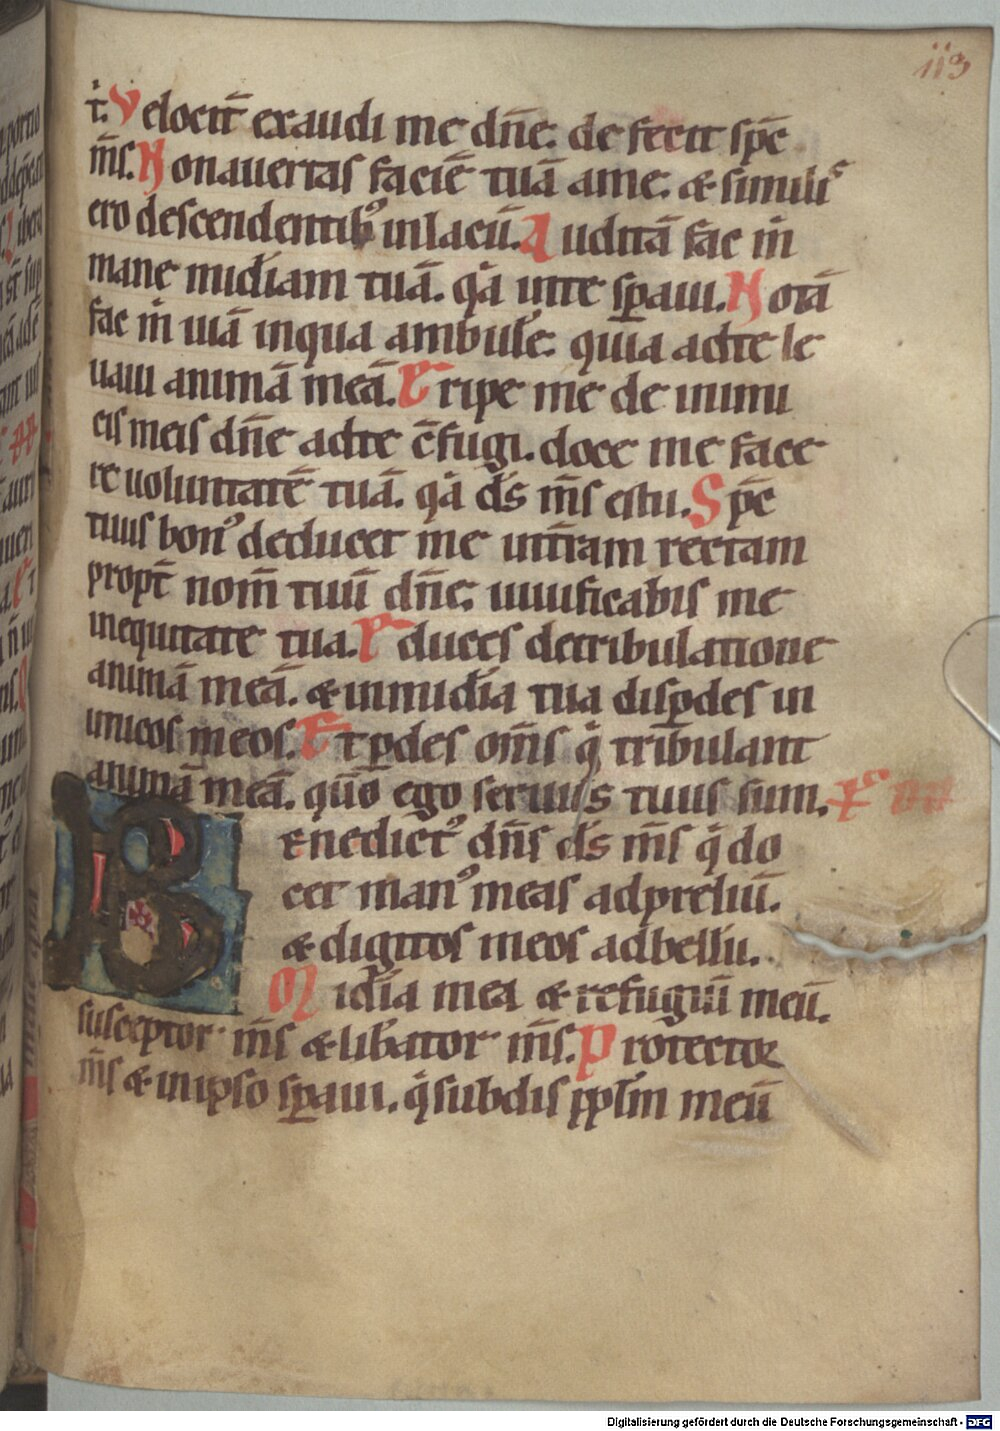 113
t̄. Velocit̄ exaudi me dn̄e. defecit sp̄c
m̄s. Non auertas faciē tuā ame. & similis
ero descendentib' inlacū. Auditā fac m̄
mane mīdiam tuā. qa inte sp̄aui. Notā
fac m̄ uiā inqua ambulē. quia adte le
uaui animā meā. Eripe me de inimi
cis meis dn̄e adte c̄fugi. doce me face
re uoluntatē tuā. qa d̄s m̄s estu. Sp̄c
tuus bon' deducet me int̄ram rectam
propt̄ nom̄ tuū dn̄e. uiuificabis me
inequitate tua. Educes detribulatione
animā meā. & inmīdia tua disp̄des in
imicos meos. Et p̄des om̄s q tribulant
animā meā. qūo ego seruus tuus sum.
Benedict' dn̄s d̄s m̄s q do
cet man' meas adpreliū.
& digitos meos adbellū.
Mīdia mea & refugiū meū.
susceptor m̄s & lib̄ator m̄s. Protector
m̄s & inipso sp̄aui. q subdis pp̄lm meū
Digitalisierung gefördert durch die Deutsche Forschungsgemeinschaft - DFG